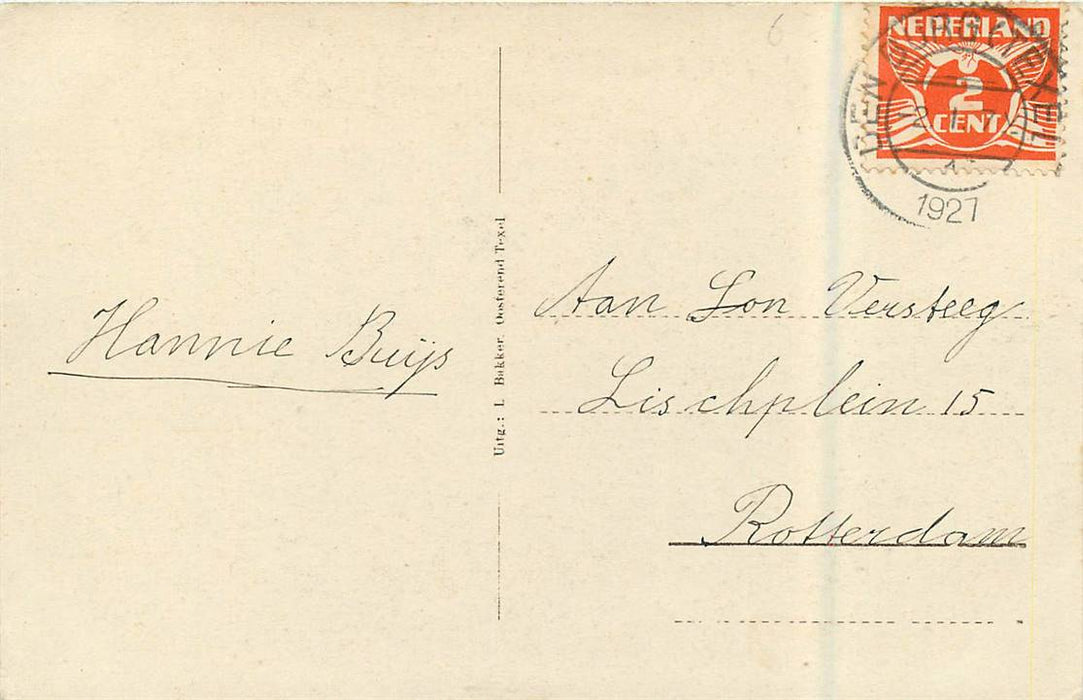 6
NEDERLAND
2
CENT
DEN BURG (TEXEL
1927
Hannie Buijs
Uitg.: L. Bakker, Oosterend Texel
Aan Lon Versteeg
Lischplein 15
Rotterdam